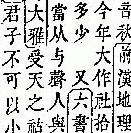 音秋前漢地理
今年大作社拾
多少又六書
當从与聲人與
大雅受天之祜
君子不可以小